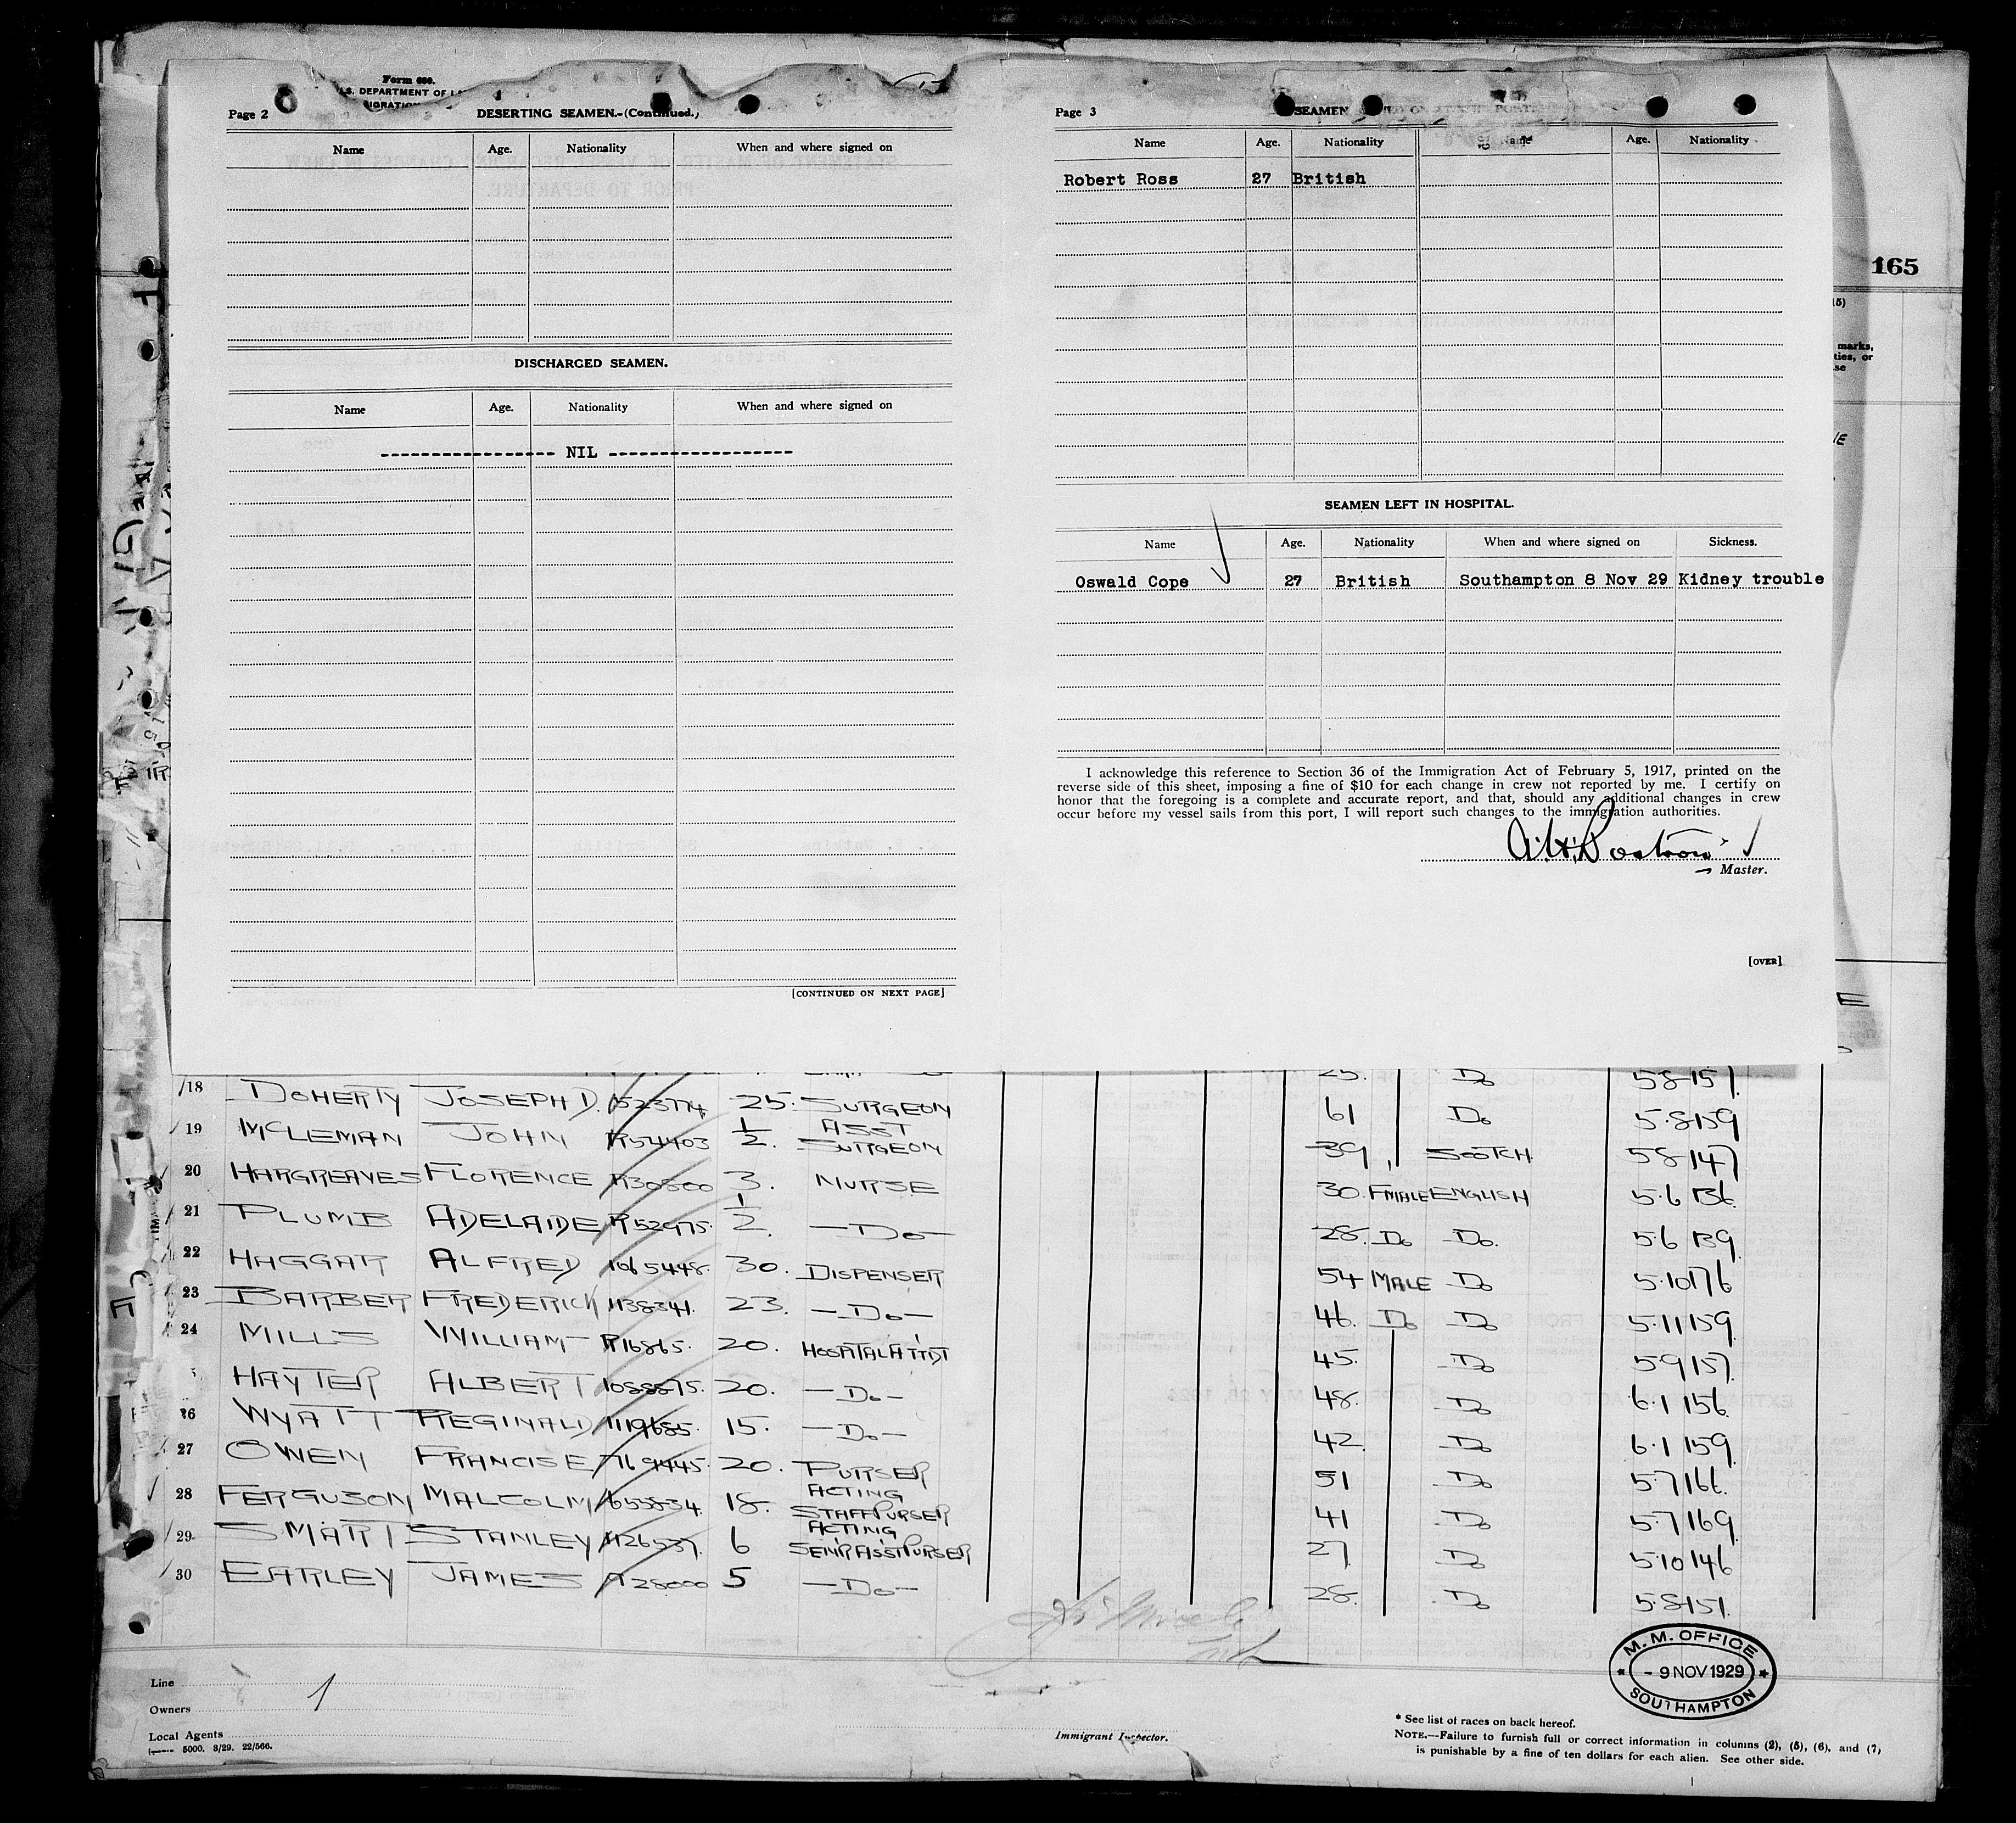 Form 680.
U.S. DEPARTMENT OF
Page 2
DESERTING SEAMEN.-(Continued.)
Name Age. Nationality When and where signed on
DISCHARGED SEAMEN.
Name Age. Nationality When and where signed on
NIL
[CONTINUED ON NEXT PAGE]
Page 3
SEAMEN
Name Age. Nationality Name Age. Nationality
Robert Ross 27 British
SEAMEN LEFT IN HOSPITAL.
Name Age. Nationality When and where signed on Sickness.
Oswald Cope 27 British Southampton 8 Nov 29 Kidney trouble
I acknowledge this reference to Section 36 of the Immigration Act of February 5, 1917, printed on the
reverse side of this sheet, imposing a fine of $10 for each change in crew not reported by me. I certify on
honor that the foregoing is a complete and accurate report, and that, should any additional changes in crew
occur before my vessel sails from this port, I will report such changes to the immigration authorities.
A.H. Rostron
Master.
[OVER]
165
marks,
ties, or
25. Do 5 8 157.
18 DOHERTY JOSEPH D. 25. SURGEON 61 Do 5.8 159
19 MCLEMAN JOHN R54403 1/2. ASST SURGEON 39 SCOTCH 5 8 147
20 HARGREAVES FLORENCE R30800 3. NURSE 30. FMALE ENGLISH 5.6 136.
21 PLUMB ADELAIDE R52975. 1/2. -Do- 28. Do Do. 5.6 139.
22 HAGGAR ALFRED 1065448. 30. DISPENSER 54 MALE Do 5.10 176
23 BARBER FREDERICK 1138341. 23. -Do- 46. Do Do 5.11 159.
24 MILLS WILLIAM R16865. 20. HOSPITAL ATTDT 45. Do 5.9 157.
HAYTER ALBERT 1088875. 20. -Do- 48. Do 6.1 156.
26 WYATT REGINALD 1119685. 15. -Do- 42. Do 6.1 159.
27 OWEN FRANCIS E 769445. 20. PURSER 51 Do 5.7 166.
28 FERGUSON MALCOLM 653834. 18. ACTING STAFF PURSER 41 Do 5.7 169.
29 SMART STANLEY 6 ACTING SENR ASST PURSER 27 Do 5.10 146
30 EARLEY JAMES R28000 5 -Do- 28. Do 5.8 151.
M. M. OFFICE
- 9 NOV 1929
SOUTHAMPTON
Line
1
Owners
Local Agents
5000. 8/29. 22/566.
Immigrant Inspector.
* See list of races on back hereof.
NOTE.—Failure to furnish full or correct information in columns (2), (5), (6), and (7)
is punishable by a fine of ten dollars for each alien. See other side.